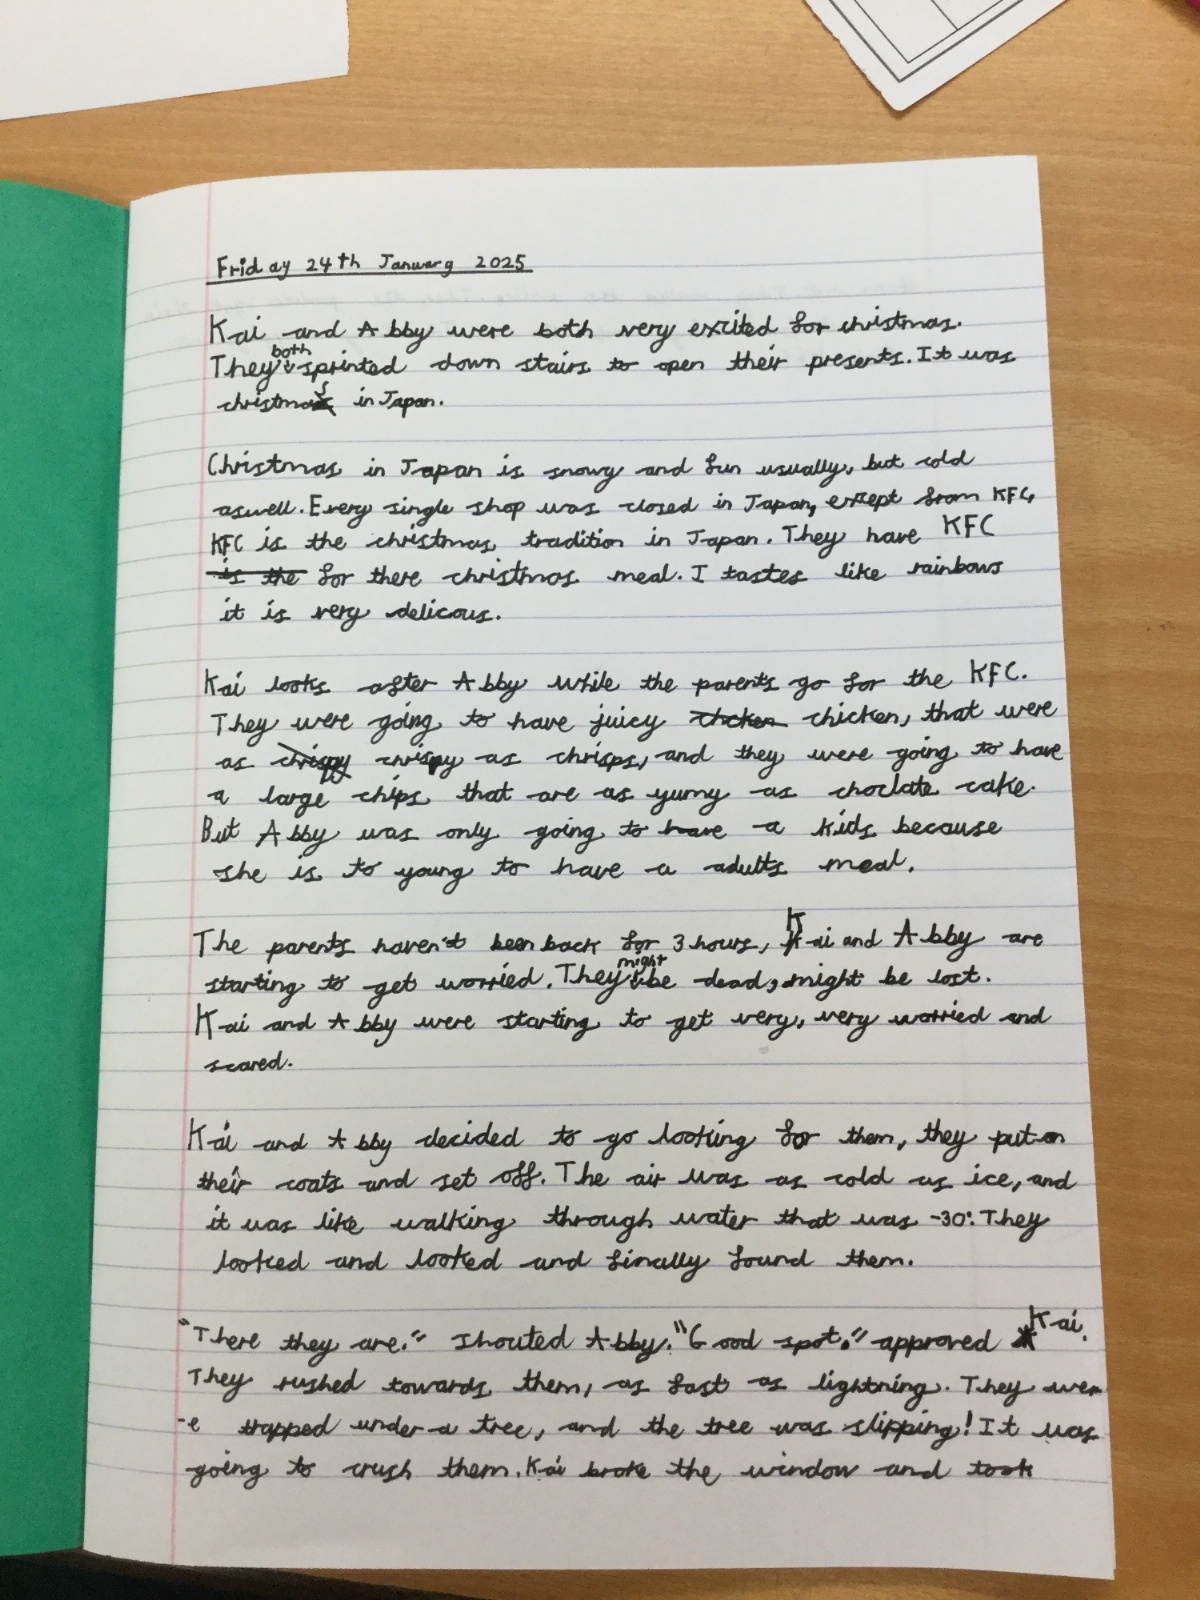 Friday 24th January 2025
Kai and Abby were both very excited for christmas.
They both sprinted down stairs to open their presents. It was
christmas in Japan.
Christmas in Japan is snowy and fun usually, but cold
aswell. Every single shop was closed in Japan, except from KFC,
KFC is the christmas tradition in Japan. They have KFC
is the for there christmas meal. I tastes like rainbows
it is very delicous.
Kai looks after Abby while the parents go for the KFC.
They were going to have juicy chcken chicken, that were
as chrispy crispy as chrisps, and they were going to have
a large chips that are as yumy as choclate cake.
But Abby was only going to have a kids because
she is to young to have a adults meal.
The parents haven't been back for 3 hours, Kai and Abby are
starting to get worried. They might be dead, might be lost.
Kai and Abby were starting to get very, very worried and
scared.
Kai and Abby decided to go looking for them, they put on
their coats and set off. The air was as cold as ice, and
it was like walking through water that was -30°. They
looked and looked and finally found them.
"There they are." shouted Abby. "Good spot." approved Kai.
They rushed towards them, as fast as lightning. They wer
-e trapped under a tree, and the tree was slipping! It was
going to crush them. Kai broke the window and took